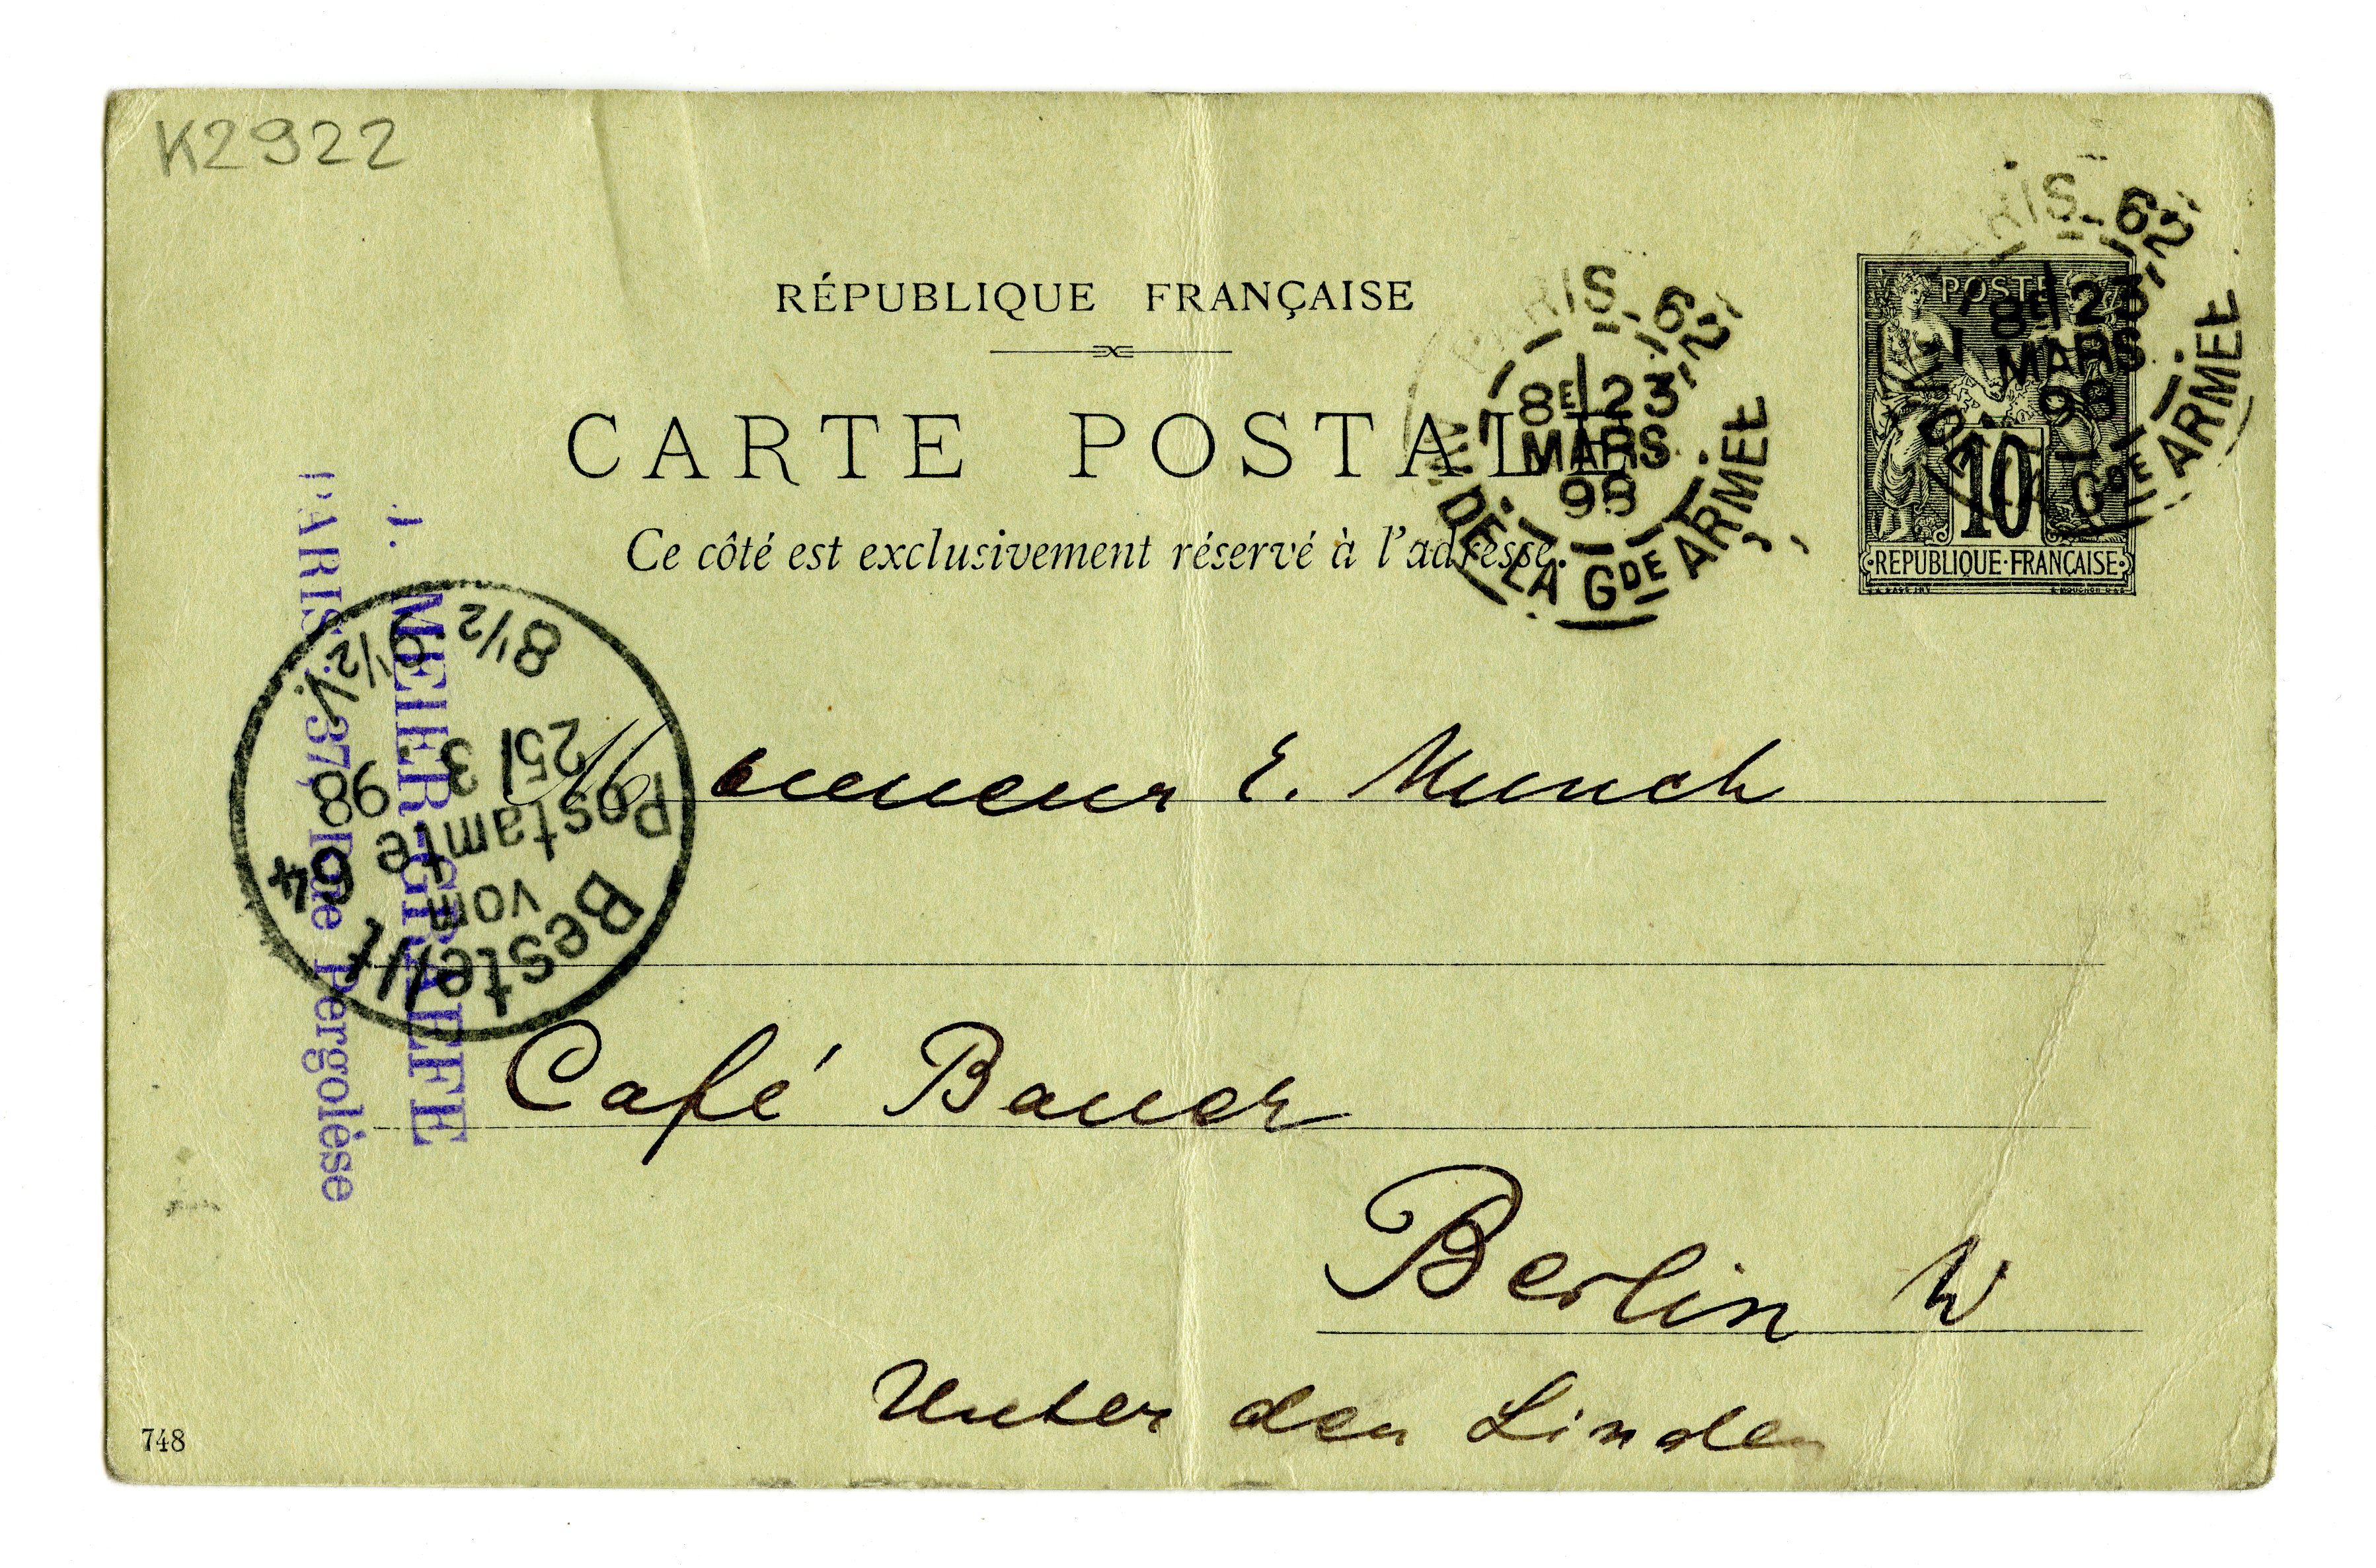 K2922
RÉPUBLIQUE FRANÇAISE
CARTE POSTALE
Ce côté est exclusivement réservé à l'adresse.
PARIS
AV. DE LA GDE ARMÉE
8E 23
MARS
98
POSTES
10
REPUBLIQUE FRANÇAISE
PARIS
DE LA GDE ARMÉE
8E 23
MARS
98
J. MEIER-GRAEFE
PARIS, 37, Rue Pergolèse
Bestellt
vom
Postamte 64
25/3 98
8½ 9½V.
Monsieur E. Munch
Café Bauer
Berlin W
Unter den Linden
748